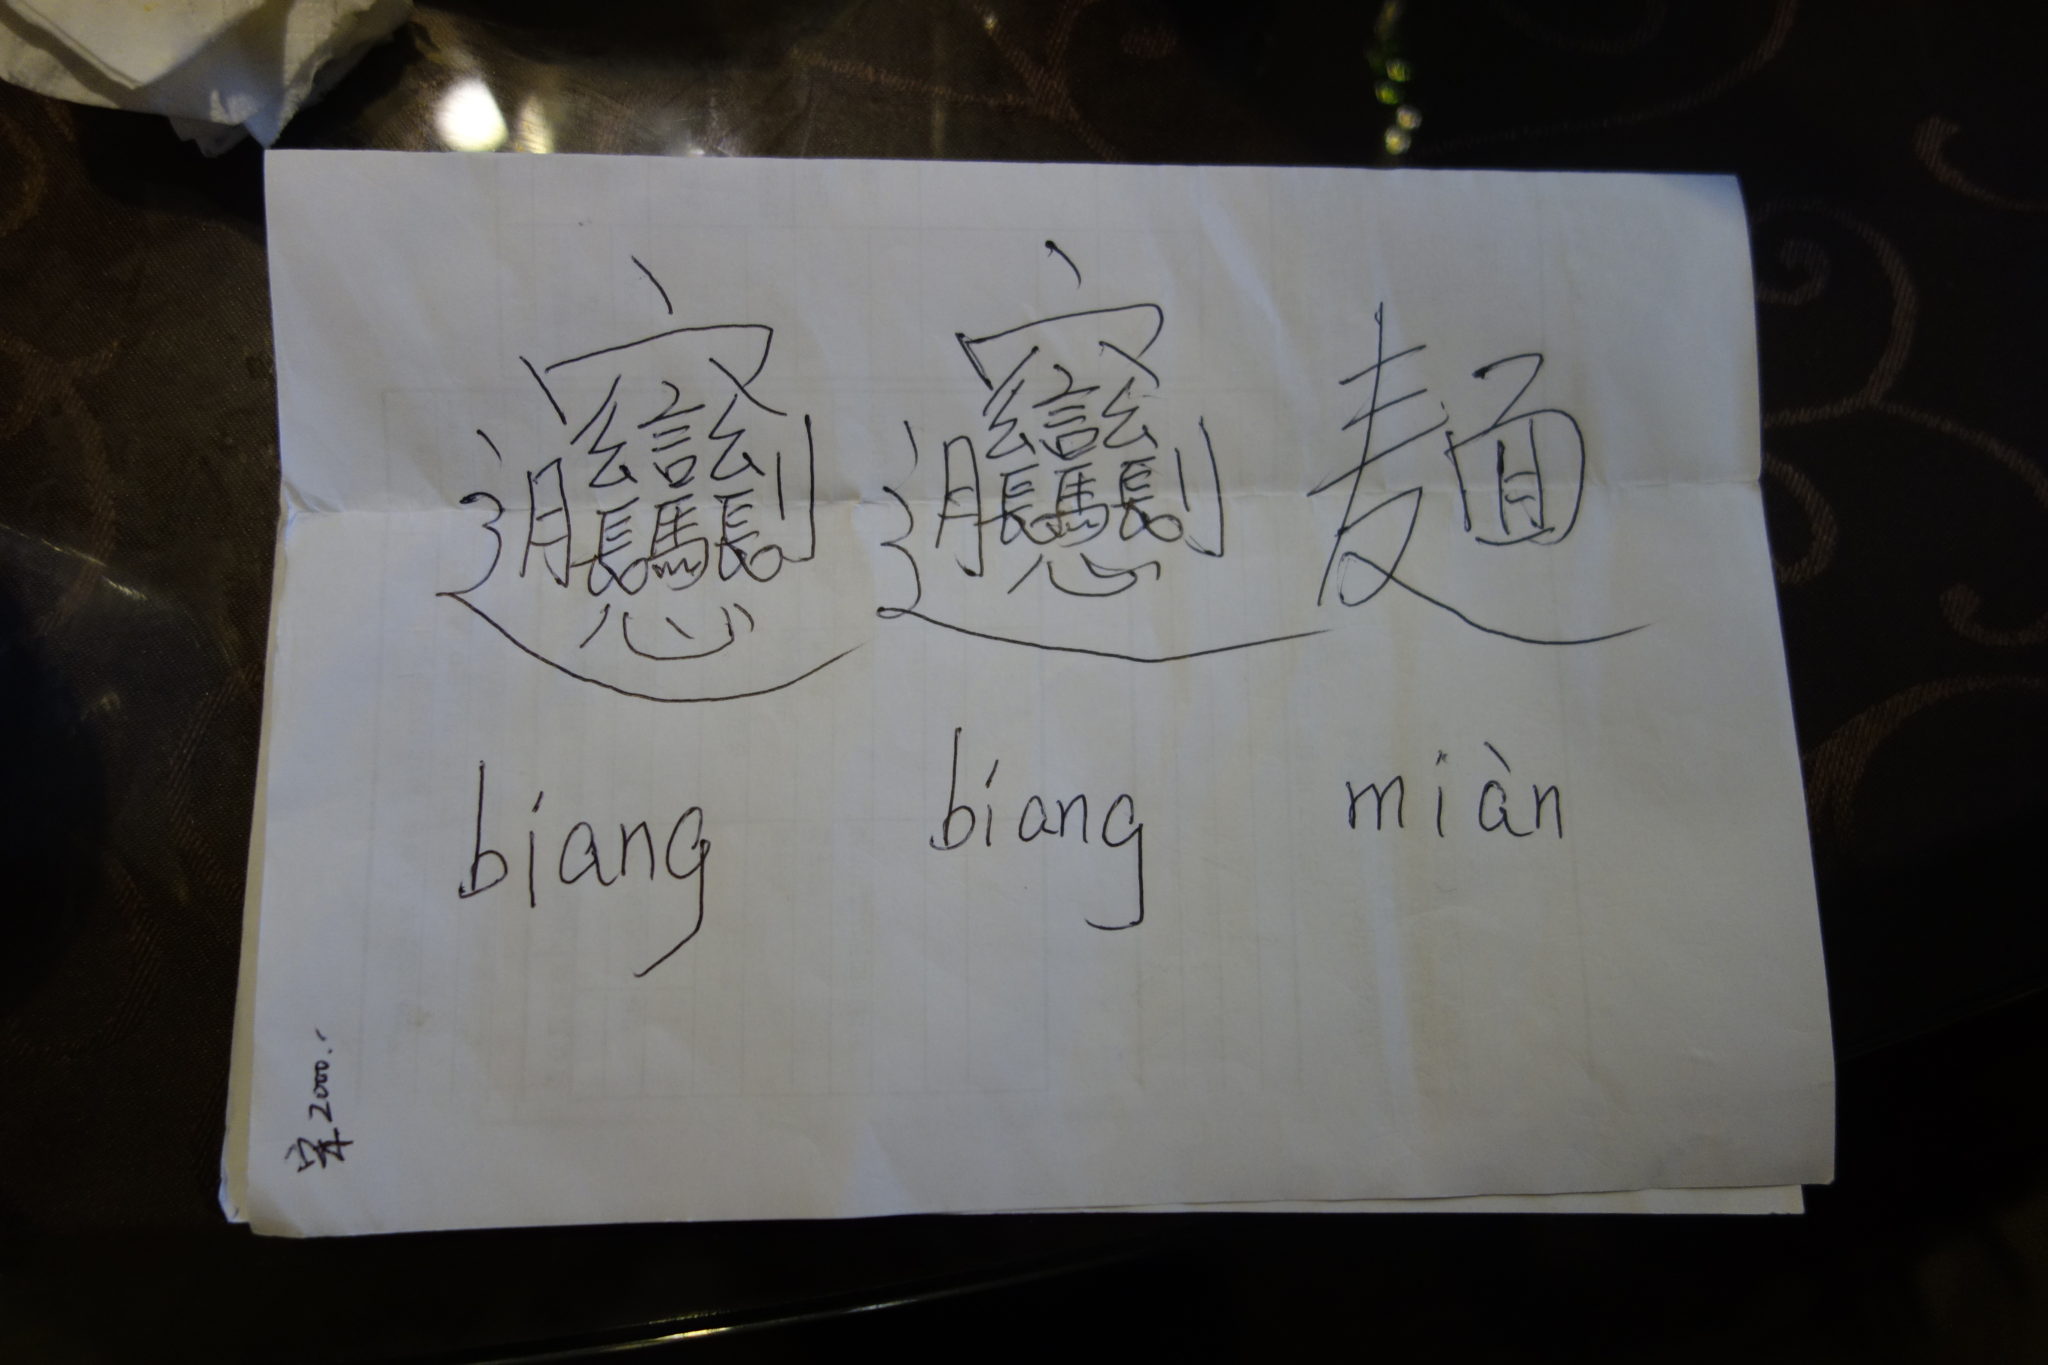 𰻝𰻝麺
biang biang miàn
2000.